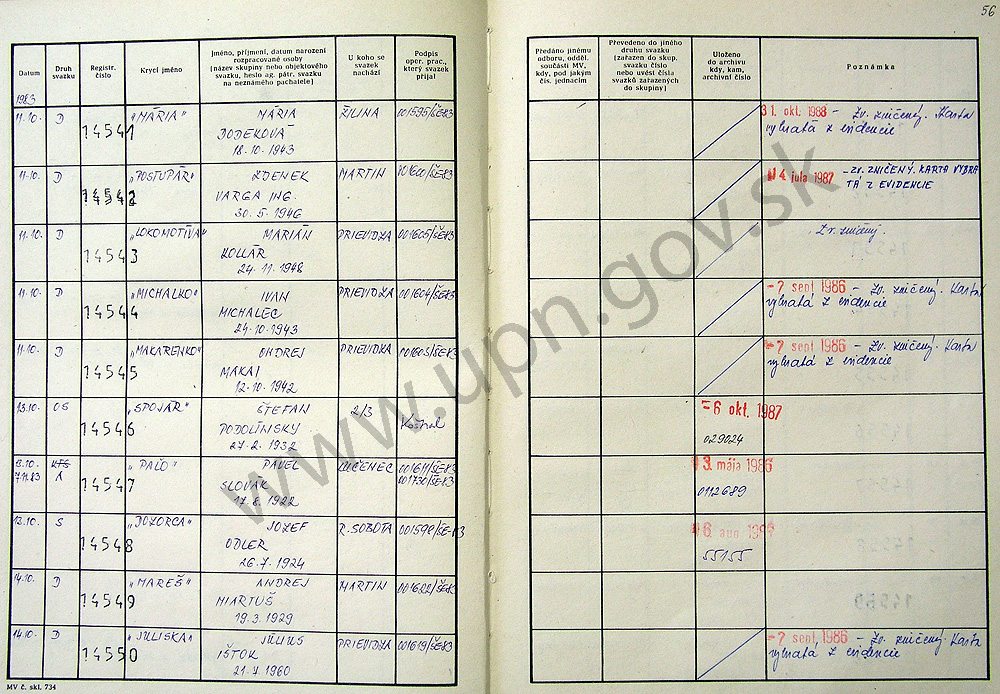 56
Datum
Druh svazku
Registr. číslo
Krycí jméno
Jméno, příjmení, datum narození
rozpracované osoby
(název skupiny nebo objektového
svazku, heslo ag. pátr. svazku
na neznámého pachatele)
U koho se
svazek
nachází
Podpis
oper. prac.,
který svazek
přijal
Předáno jinému
odboru, odděl.
součásti MV,
kdy, pod jakým
čís. jednacím
Převedeno do jiného
druhu svazku
(zařazen do skup.
svazku číslo
nebo uvést čísla
svazků zařazených
do skupiny)
Uloženo
do archivu
kdy, kam,
archivní číslo
Poznámka
1983
11.10. D 14541 "MÁRIA" MÁRIA ŽILINA 001595/ŠE-83 31. okt. 1988 - Zv. zničený. Karta
DODEKOVÁ vybratá z evidencie
18.10.1943
11.10. D 14542 "POSTUPÁR" ZDENEK MARTIN 14. júla 1987 - ZV. ZNIČENÝ. KARTA VYBRA
VARGA ING. TÁ Z EVIDENCIE
30.5.1946
11.10. D 14543 "LOKOMOTÍVA" MARIÁN PRIEVIDZA 001605/ŠE-83 Zv. zničený.
KOLLÁR
24.11.1948
11.10. D 14544 "MICHALKO" IVAN PRIEVIDZA 001604/ŠE-83 -7 sept 1986 - Zv. zničený. Karta
MICHALEC vybratá z evidencie
24.10.1943
11.10. D 14545 "MAKARENKO" ONDREJ PRIEVIDZA 001603/ŠE-83 -7 sept 1986 - Zv. zničený. Karta
MAKAI vybratá z evidencie
12.10.1942
13.10. OS 14546 "SPOJÁR" ŠTEFAN 2/3 -6 okt. 1987
PODOLÍNSKY 029024
27.2.1932
13.10. 14547 "PAĽO" PAVEL LUČENEC 001611/ŠE-83 13. mája 1986
7.11.83 A SLOVÁK 001730/ŠE-83 0112689
17.8.1922
13.10. S 14548 "DOZORCA" JOZEF R. SOBOTA 001592/ŠE-83
ODLER 55155
26.7.1924
14.10. D 14549 "MAREŠ" ANDREJ MARTIN 001622/ŠE
MIARTUŠ
19.3.1929
14.10. D 14550 "JULISKA" JÚLIUS PRIEVIDZA 001619/ŠE-83 -7 sept 1986 - Zv. zničený. Karta
IŠTOK vybratá z evidencie
21.7.1960
MV č. skl. 734
www.upn.gov.sk